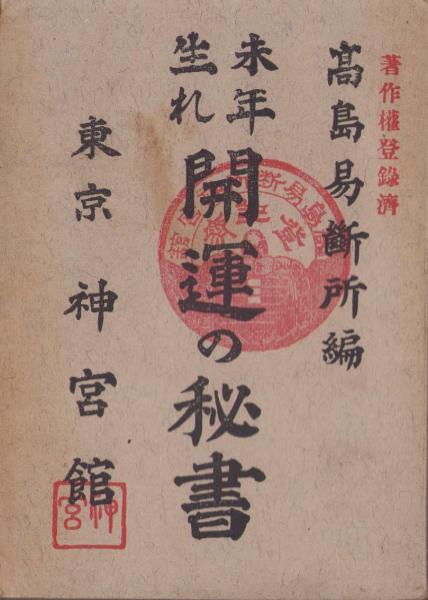 著作權登錄濟
高島易斷所編
未年
生れ
開運の秘書
東京 神宮館
神宮